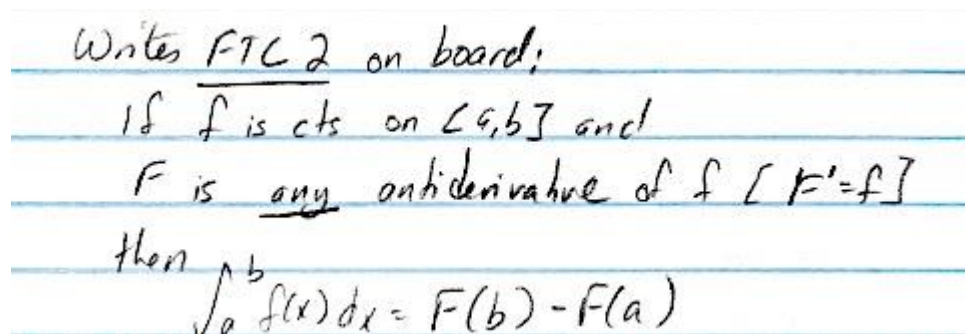 Writes FTC 2 on board:
If f is cts on [a,b] and
F is any antiderivative of f [F'=f]
then
∫_a^b f(x) dx = F(b) - F(a)